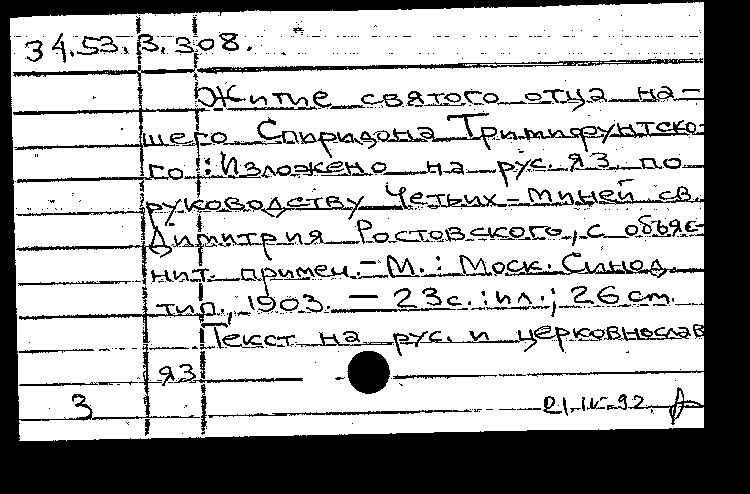 34.53.3.308.
Житие святого отца на-
шего Спиридона Тримифунтско-
го: Изложено на рус. яз. по
руководству Четьих-миней св.
Димитрия Ростовского, с объяс-
нит. примеч. – М.: Моск. Синод.
тип., 1903. – 23 с.: ил.; 26 см.
Текст на рус. и церковнослав
яз
3
21.IV.92.